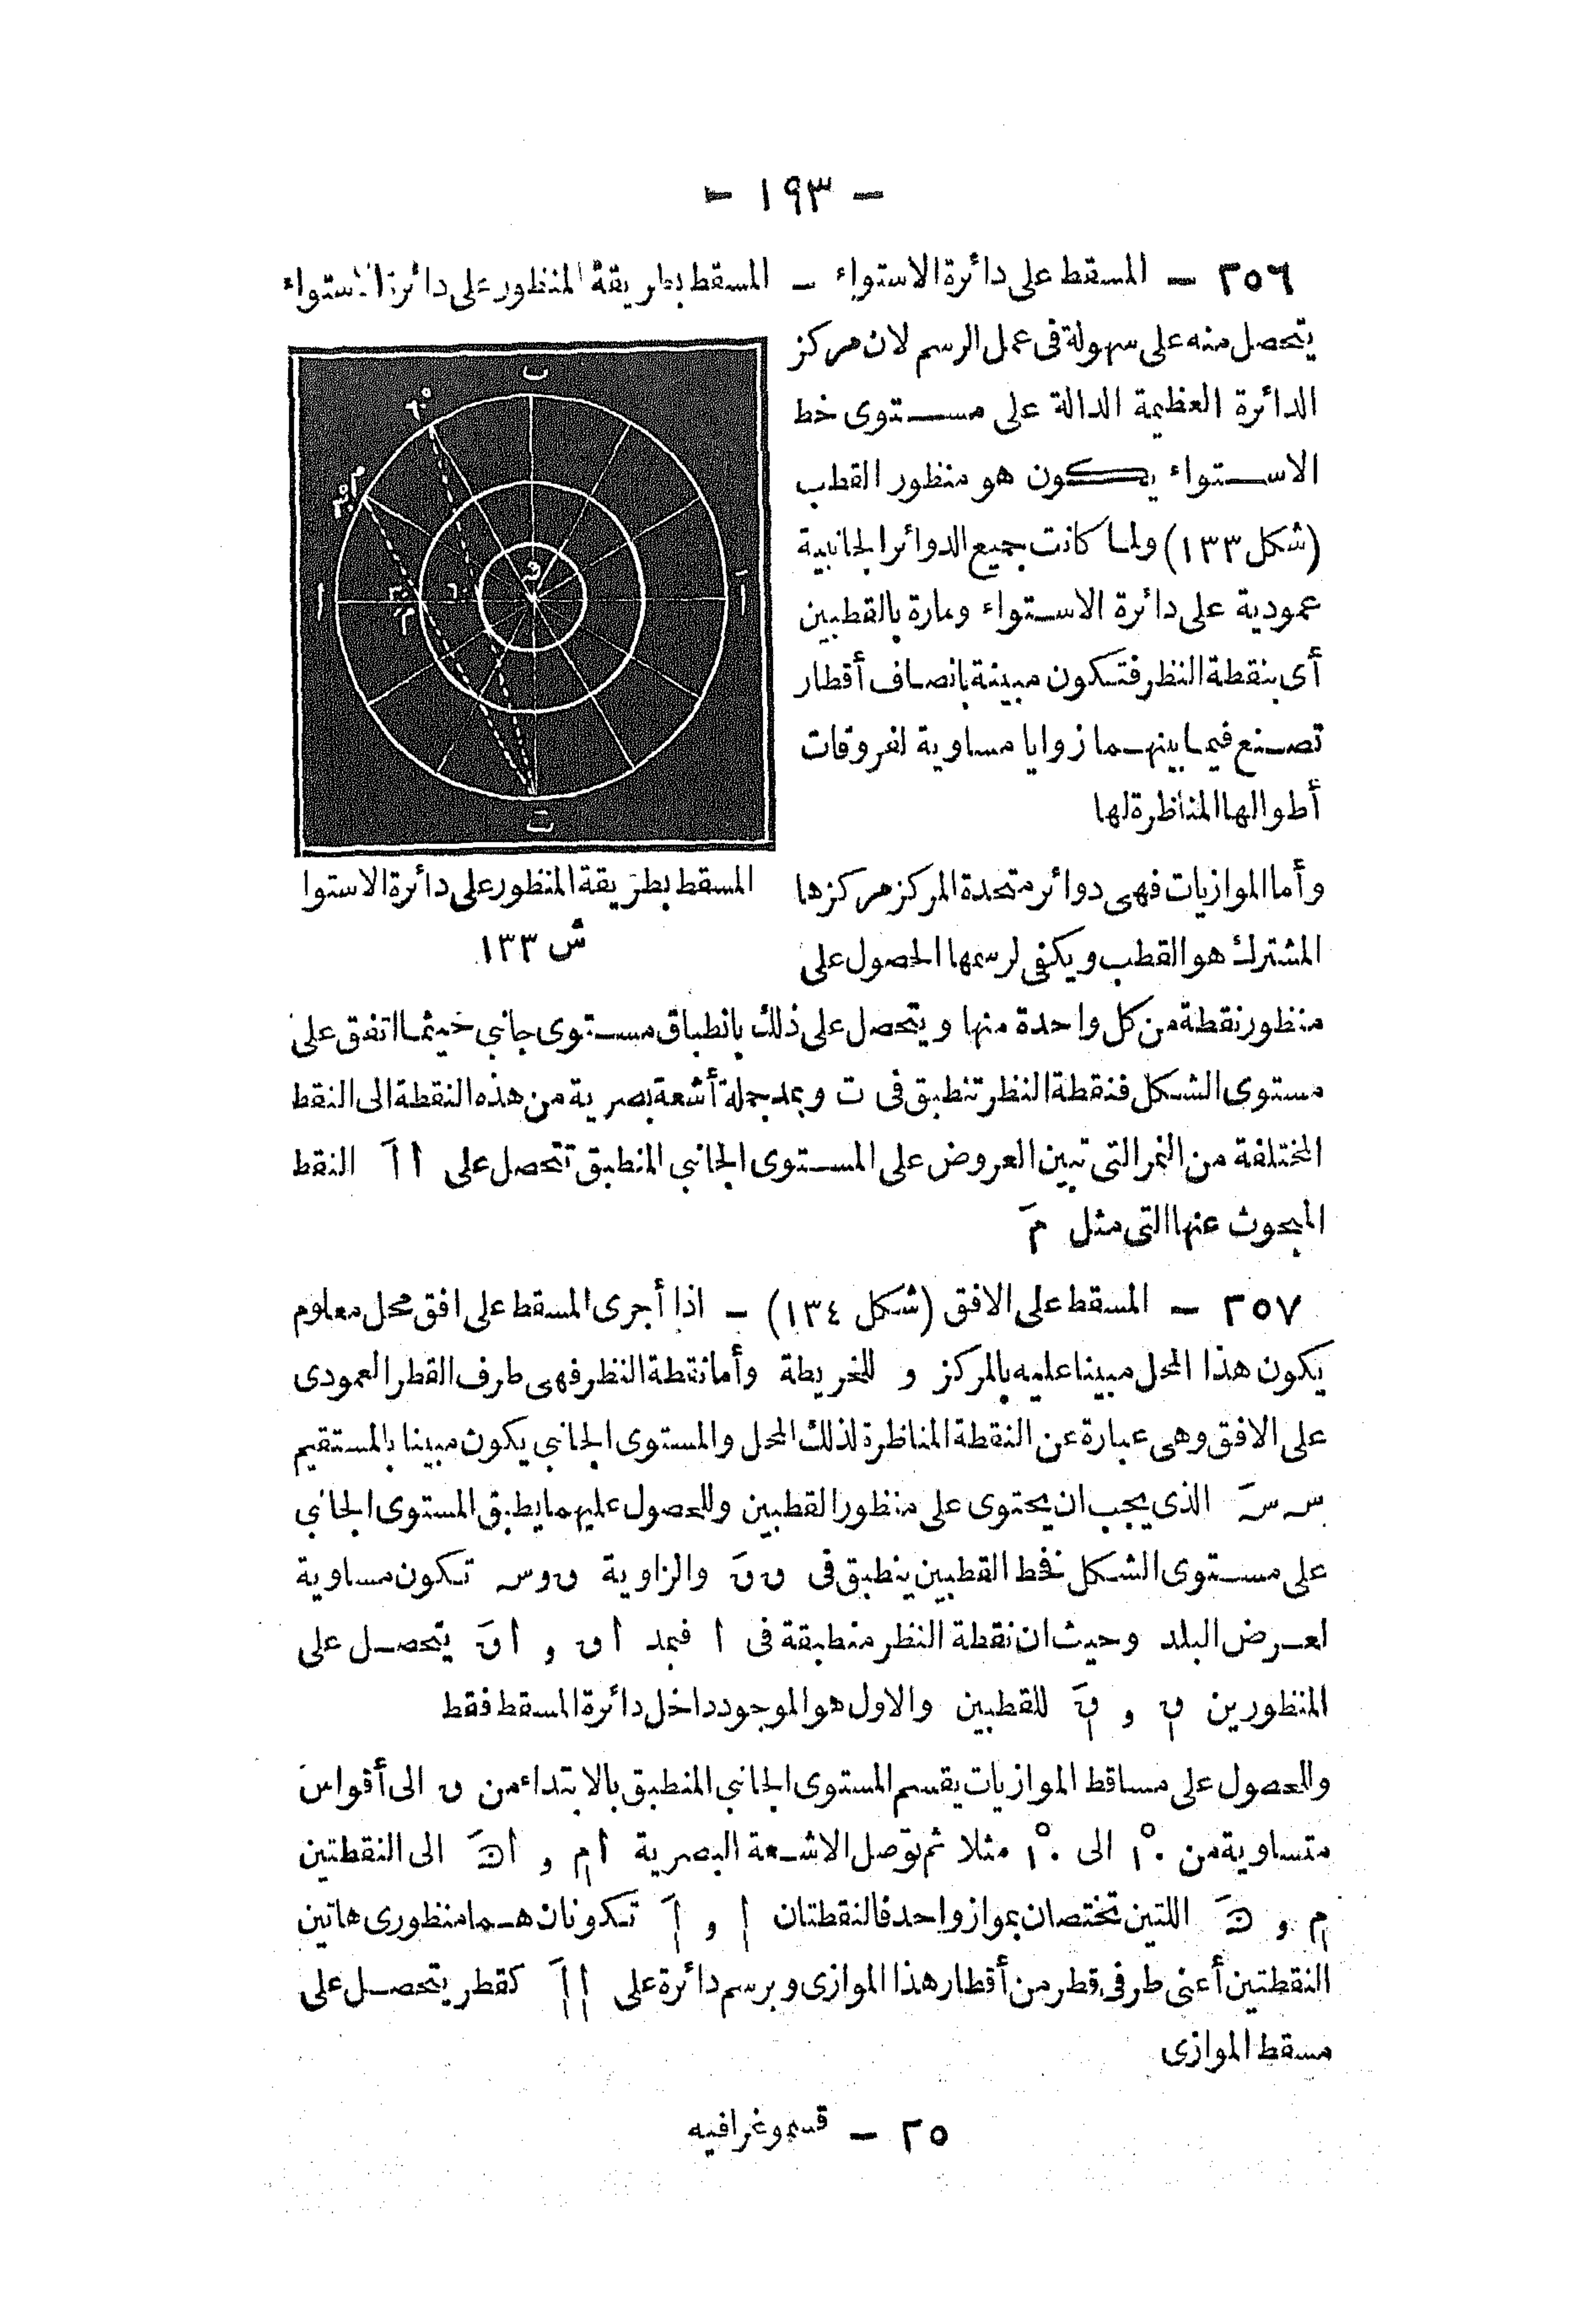 - ١٩٣ -
٢٥٦ - المسقط على دائرة الاستواء - المسقط بطريقة المنظور على دائرة الاستواء
يتحصل منه على سهولة فى عمل الرسم لان مركز
الدائرة العظيمة الدالة على مستوى خط
الاستواء يكون هو منظور القطب
(شكل ١٣٣) ولما كانت جميع الدوائر الجانبية
عمودية على دائرة الاستواء ومارة بالقطبين
أى بنقطة النظر فتكون مبينة بانصاف أقطار
تصنع فيما بينهما زوايا مساوية لفروقات
أطوالها المناظرة لها
ب
٦٠°
م
٣٠°
و
أ
٣٠
م َ
٦٠
آ
ت
المسقط بطريقة المنظور على دائرة الاستوا
ش ١٣٣
وأما الموازيات فهى دوائر متحدة المركز مركزها
المشترك هو القطب ويكفى لرسمها الحصول على
منظور نقطة من كل واحدة منها ويتحصل على ذلك بانطباق مستوى جانبى حيثما اتفق على
مستوى الشكل فنقطة النظر تنطبق فى ت وبمد جملة أشعة بصرية من هذه النقطة الى النقط
المختلفة من النمر التى تبين العروض على المستوى الجانبى المنطبق تتحصل على ا اَ النقط
المبحوث عنها التى مثل مَ
٢٥٧ - المسقط على الافق (شكل ١٣٤) - اذا أجرى المسقط على افق محل معلوم
يكون هذا المحل مبينا عليه بالمركز و للخريطة وأما نقطة النظر فهى طرف القطر العمودى
على الافق وهى عبارة عن النقطة المناظرة لذلك المحل والمستوى الجانبى يكون مبينا بالمستقيم
س سَ الذى يجب ان يحتوى على منظور القطبين وللحصول عليهما يطبق المستوى الجانبى
على مستوى الشكل فخط القطبين ينطبق فى ں ںَ والزاوية ں و س تكون مساوية
لعرض البلد وحيث ان نقطة النظر منطبقة فى ا فبمد ا ں و ا ںَ يتحصل على
المنظورين للقطبين والاول هو الموجود داخل دائرة المسقط فقط
وللحصول على مساقط الموازيات يقسم المستوى الجانبى المنطبق بالابتداء من ں الى أقواس
متساوية من ١٠° الى ١٠° مثلا ثم توصل الاشعة البصرية ا م و ا حَ الى النقطتين
م و حَ اللتين تختصان بمواز واحد فالنقطتان ا و اَ تكونان هما منظورى هاتين
النقطتين أعنى طرفى قطر من أقطار هذا الموازى وبرسم دائرة على ا اَ كقطر يتحصل على
مسقط الموازى
٢٥ - قسموغرافيه